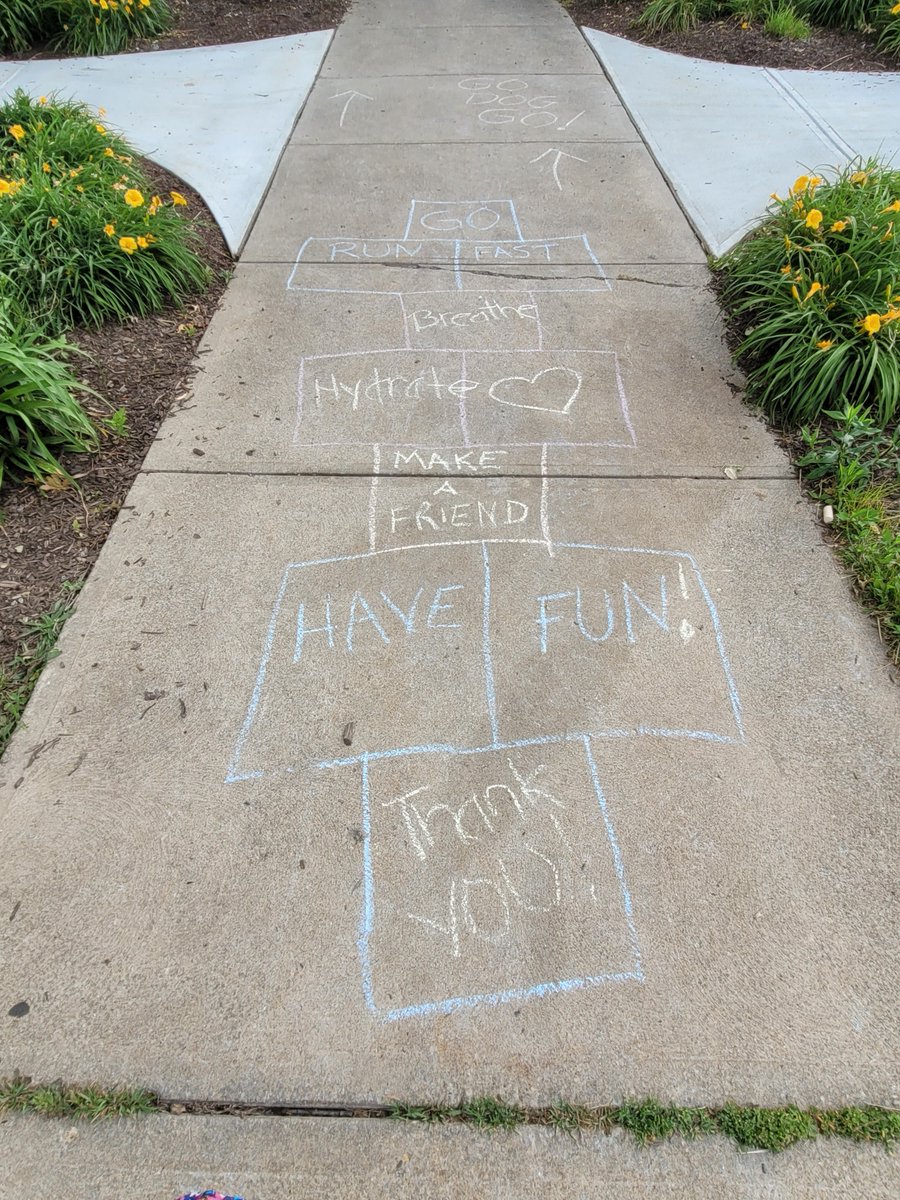 GO
DOG
GO!
GO
RUN FAST
Breathe
Hydrate
MAKE
A
FRIEND
HAVE FUN!
Thank
YOU!